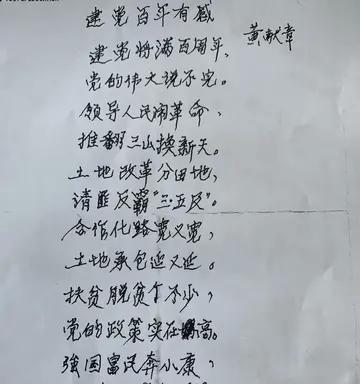 建党百年有感
黄献章
建党将满百周年，
党的伟大说不完。
领导人民闹革命、
推翻三山换新天。
土地改革分田地，
请匪反霸“三.五反”。
合作化路宽又宽，
土地承包延又延。
扶贫脱贫个不少，
党的政策实在高。
強国富民奔小康，